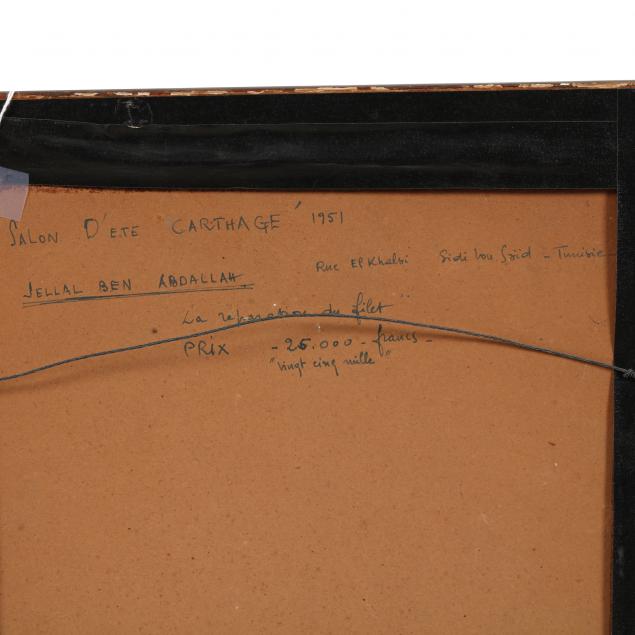 SALON D'ETE "CARTHAGE" 1951
Rue El Khalsi Sidi bou Saïd - Tunisie
JELLAL BEN ABDALLAH
La reparation du filet"
PRIX - 25.000 - francs -
"vingt cinq mille"